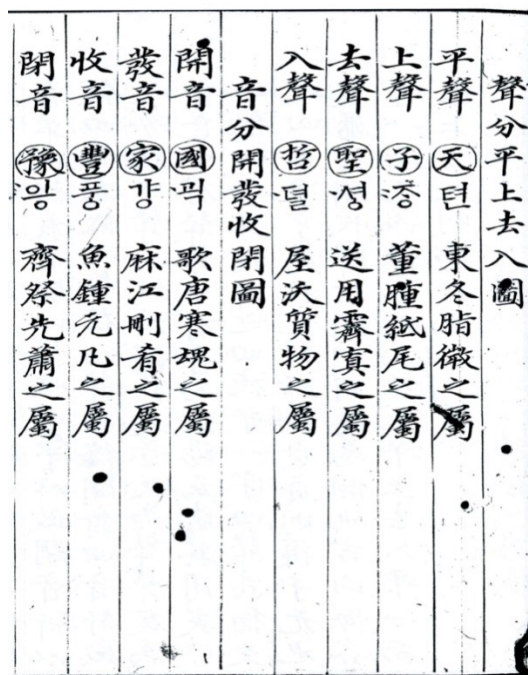 聲分平上去入圖
平聲 天 텬 東冬脂微之屬
上聲 子 董腫紙尾之屬
去聲 聖 셩 送用霽寘之屬
入聲 哲 뎔 屋沃質物之屬
音分開發收閉圖
開音 國 귁 歌唐寒魂之屬
發音 家 걍 麻江刪肴之屬
收音 豐 풍 魚鍾元凡之屬
閉音 豫 齊祭先蕭之屬